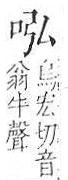 吆
烏宏切音
翁牛聲